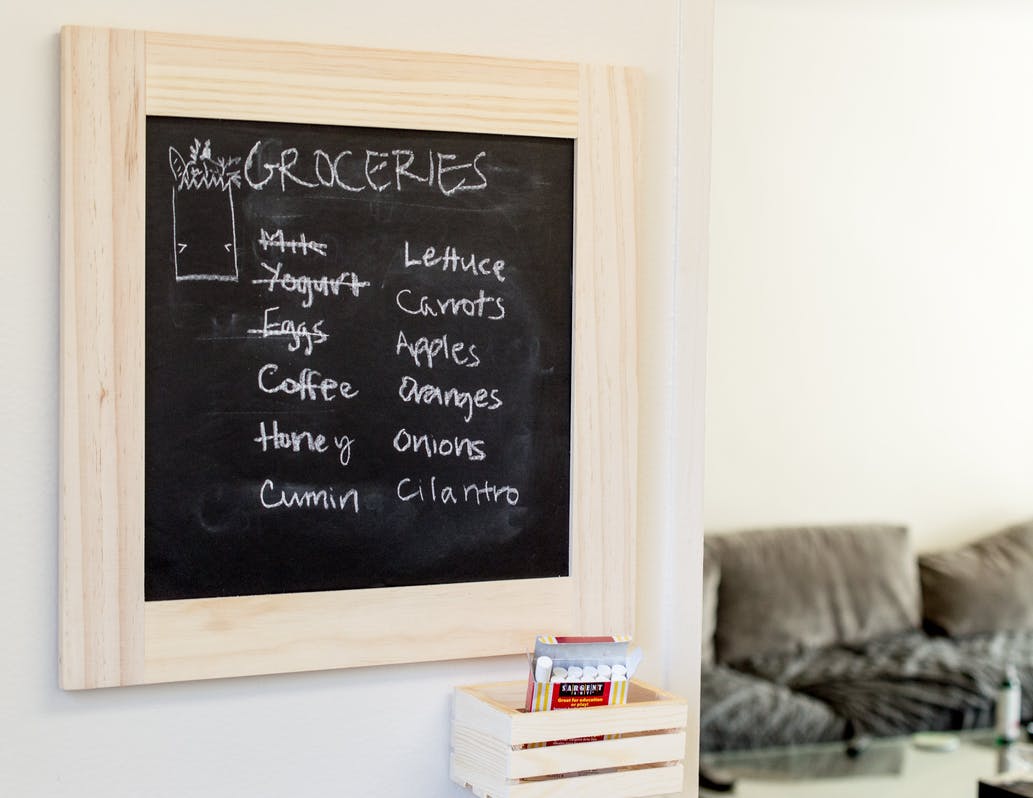 GROCERIES
Milk
Yogurt
Eggs
Coffee
Honey
Cumin
Lettuce
Carrots
Apples
Oranges
Onions
Cilantro
SARGENT
Great for education
or play!